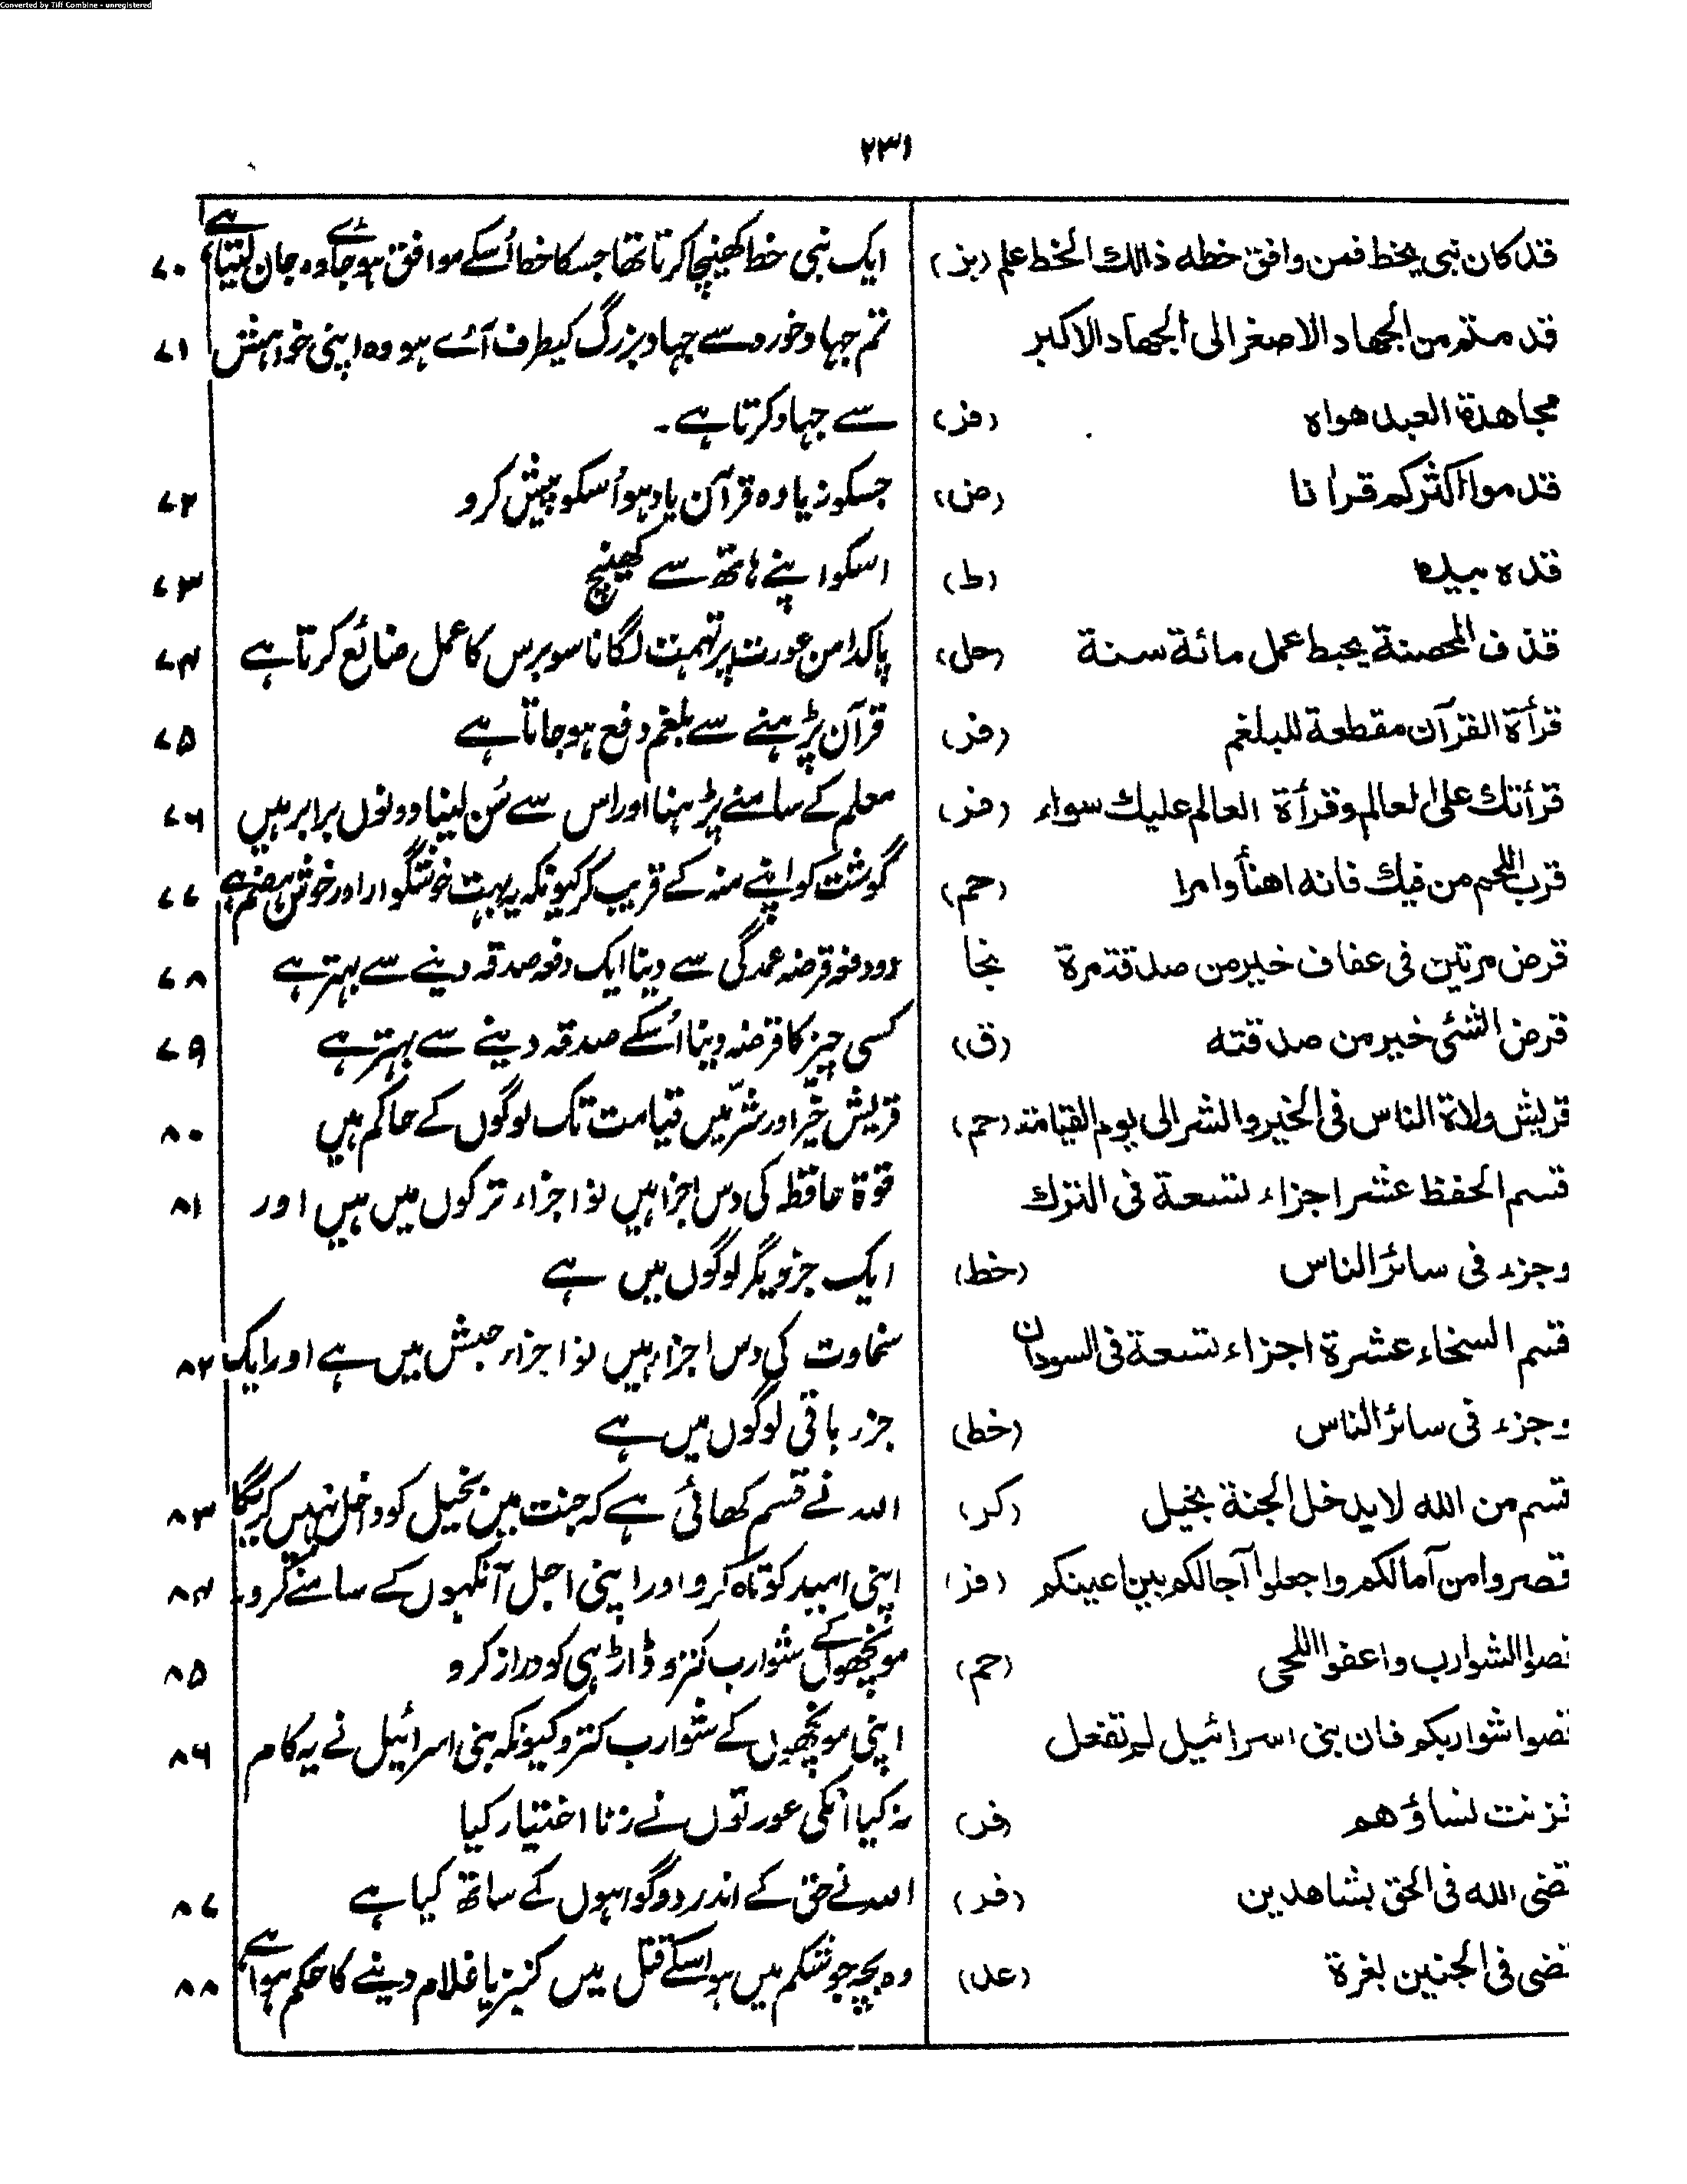 Converted by Tiff Combine - unregistered
۲۳۱
قد كان نبى يخط فمن وافق خطه ذالك الخط علم (بز) ایک نبی خط کھینچا کرتا تھا جسکا خط اُسکے موافق ہو جائے وہ جان لیتا ہے ۷۰
قدمتم من الجهاد الاصغر الى الجهاد الاكبر تم جہاد خورد سے جہاد بزرگ کیطرف آئے ہو وہ اپنی خواہش ۷۱
مجاهدة العبد هواه (فز) سے جہاد کرتا ہے۔
قدموا اكثركم قرأنا (ض) جسکو زیادہ قرآن یاد ہو اُسکو پیش کرو ۷۲
قده بيده (ط) اسکو اپنے ہاتھ سے کھینچ ۷۳
قذف المحصنة يحبط عمل مائة سنة (حل) پاکدامن عورت پر تہمت لگانا سو برس کا عمل ضائع کرتا ہے ۷۴
قرأة القرآن مقطعة للبلغم (فز) قرآن پڑہنے سے بلغم دفع ہو جاتا ہے ۷۵
قرأتك على العالم وقرأة العالم عليك سواء (فز) معلم کے سامنے پڑہنا اور اس سے سُن لینا دونوں برابر ہیں ۷۶
قرب اللحم من فيك فانه اهنأ وامرا (حم) گوشت کو اپنے منہ کے قریب کر کیونکہ یہ بہت خوشگوار اور خوش ہضم ہے ۷۷
قرض مرتين فى عفاف خير من صدقة مرة نجا دو دفعہ قرضہ عمدگی سے دینا ایک دفعہ صدقہ دینے سے بہتر ہے ۷۸
قرض الشئى خير من صدقته (ق) کسی چیز کا قرضہ دینا اُسکے صدقہ دینے سے بہتر ہے ۷۹
قريش ولاة الناس فى الخير والشر الى يوم القيامة (حم) قریش خیر اور شر میں قیامت تک لوگوں کے حاکم ہیں ۸۰
قسم الحفظ عشر اجزاء تسعة فى الترك قوۃ حافظہ کی دس اجزا ہیں نو اجزاء ترکوں میں ہیں اور ۸۱
وجزء فى سائر الناس (خط) ایک جزو دیگر لوگوں میں ہے
قسم السخاء عشرة اجزاء تسعة فى السودان سخاوت کی دس اجزاء ہیں نو اجزاء حبش میں ہے اور ایک ۸۲
وجزء فى سائر الناس (خط) جزء باقی لوگوں میں ہے
قسم من الله لا يدخل الجنة بخيل (کر) اللہ نے قسم کھائی ہے کہ جنت میں بخیل کو داخل نہیں کریگا ۸۳
قصروا من آمالكم واجعلوا آجالكم بين اعينكم (فز) اپنی امید کوتاہ کرو اور اپنی اجل آنکہوں کے سامنے کرو۔ ۸۴
قصوا الشوارب واعفوا اللحى (حم) مونچھوں کے شوارب کترو ڈاڑہی کو دراز کرو ۸۵
قصوا شواربكم فان بنى اسرائيل لم تفعل اپنی مونچھوں کے شوارب کترو کیونکہ بنی اسرائیل نے یہ کام ۸۶
فزنت نساؤهم (فر) نہ کیا انکی عورتوں نے زنا اختیار کیا
قضى الله فى الحق بشاهدين (فر) اللہ نے حق کے اندر دو گواہوں کے ساتھ کیا ہے ۸۷
قضى فى الجنين بغرة (عد) وہ بچہ جو شکم میں ہو اسکے قتل میں کنیز یا غلام دینے کا حکم ہوا ہے ۸۸